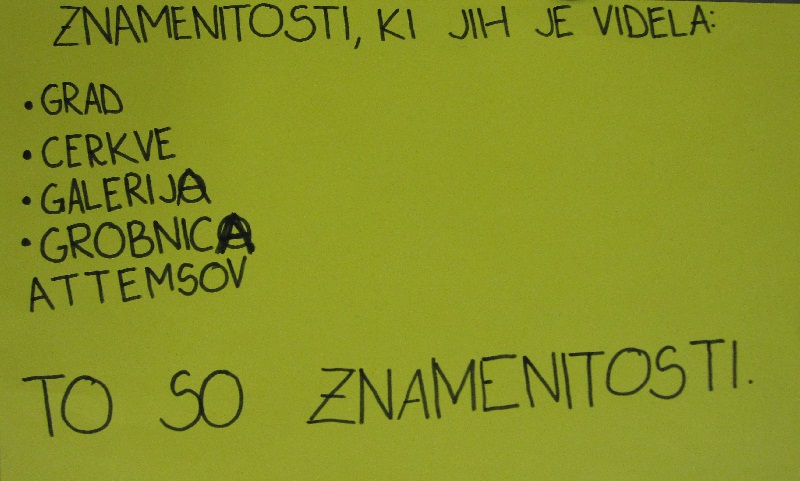 ZNAMENITOSTI, KI JIH JE VIDELA:
• GRAD
• CERKVE
• GALERIJA
• GROBNICA
ATTEMSOV
TO SO ZNAMENITOSTI.